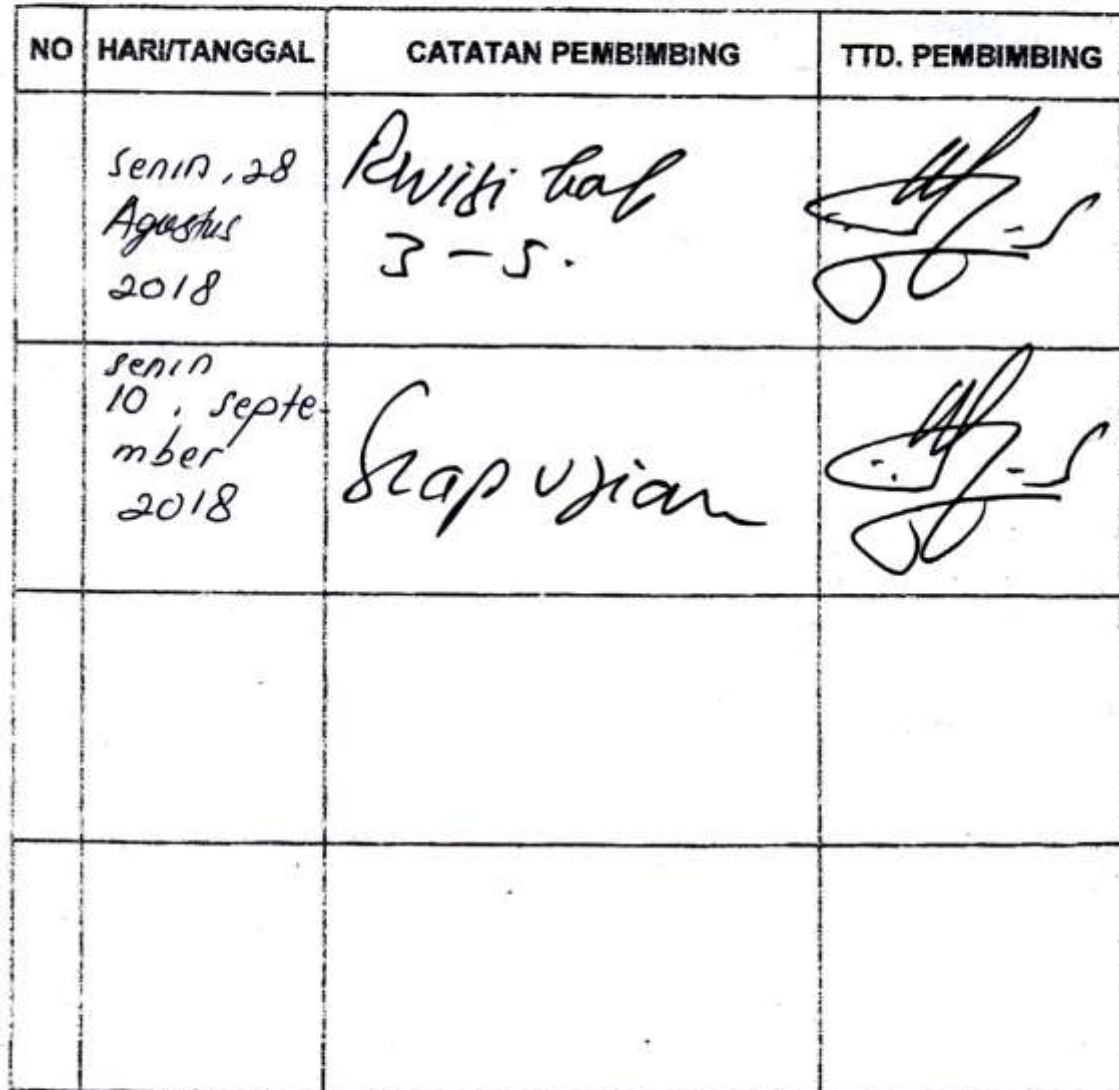 NO HARI/TANGGAL CATATAN PEMBIMBING TTD. PEMBIMBING
Senin, 28
Agustus
2018
Revisi bab
3 - 5.
Senin
10, Septe-
mber
2018
Siap ujian